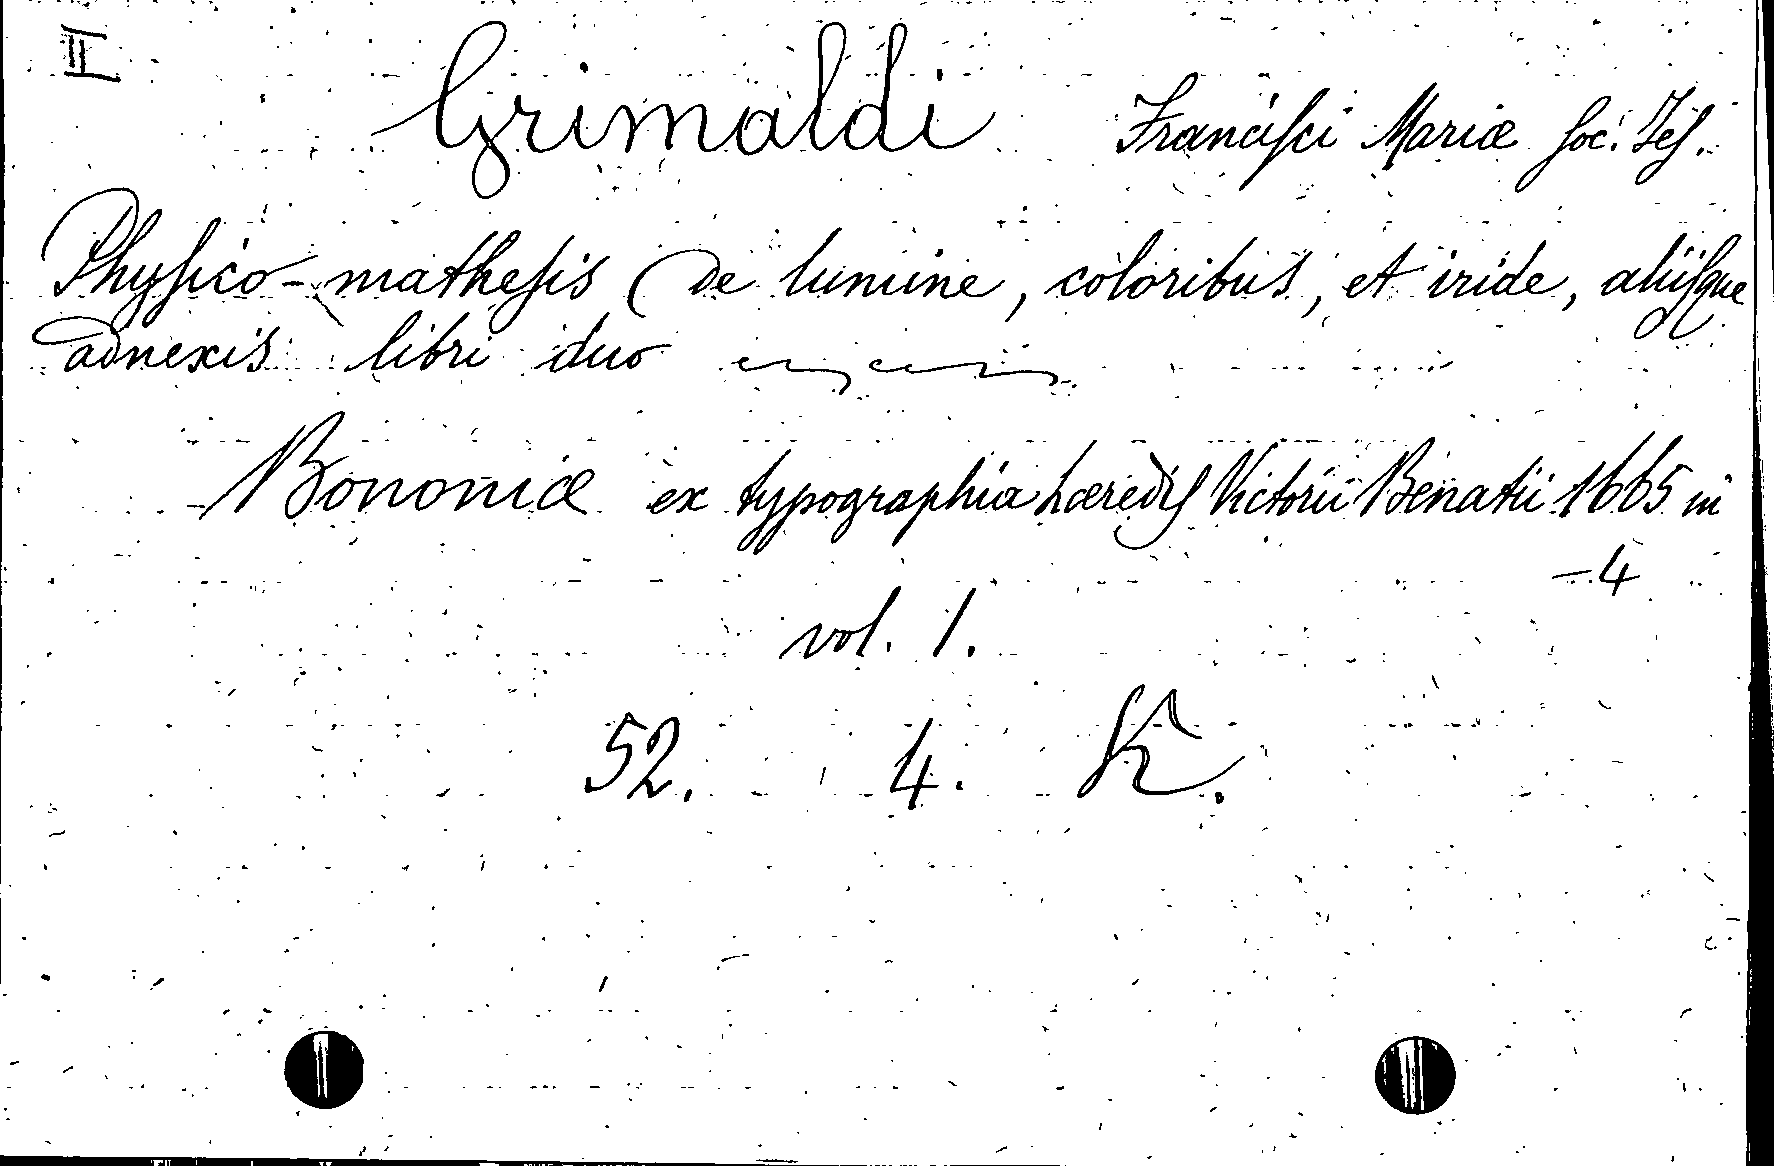 II
Grimaldi Franciſci Mariæ Soc. Jeſ.
Phyſico-matheſis De lumine, coloribus, et iride, aliiſque
adnexis libri duo
Bononiæ ex typographia hæredis Victorii Benatii 1665 in
-4
vol. 1.
52. 4. K.